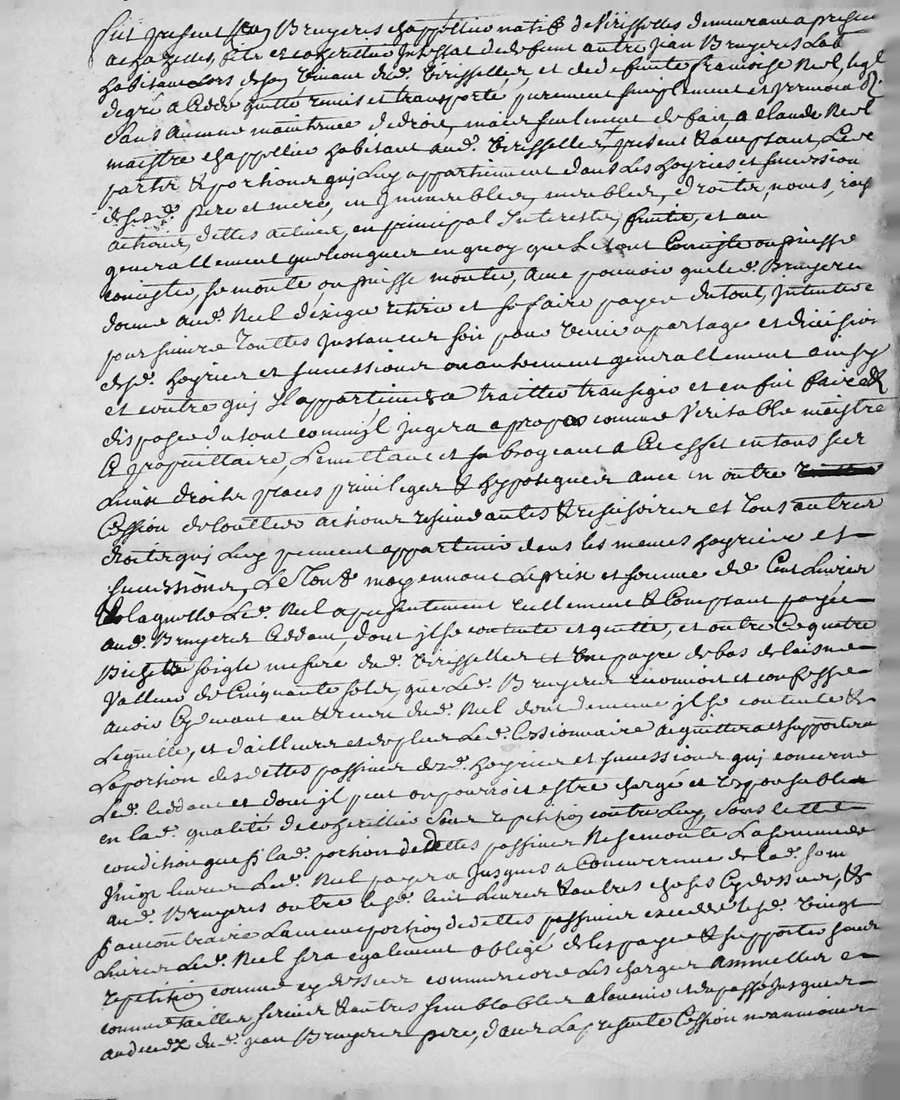 fut present Bruyeres chappellier natif de Virisselles demeurant a present
a chazelles, fils et cohérittier de deffunt autre Jean Bruyeres
habitant Lors de son vivant dud. Virisselles, et de deffunte francoise Neel, le gl
degré a Cedde quitté remis et transporte purement simplement et
sans aucune maintenue de droit, mais seulement de fait, a claude Neel
maistre chappellier habitant aud. Virisselles present & aceptant Les
partz & portions quj Luy appartiennent dans Les hoyries et succession
desd. pere et mere, en Immeubles, meubles, droits, noms,
actions, dettes actives, en principal Interests, fruits, et au
generallement quelconques en quoy que Le tout Consiste ou puisse
consister, se monte, ou puisse monter, avec pouvoir que led. Bruyeres
donne aud. Neel dexiger retirer et se faire payer du tout, Intenter
poursuivre touttes Instances soit pour venir a partage et division
desd. hoyries et successions ou autrement generallement ainsy
et contre quj Il appartiendra traitter transiger et en fin faire &
disposer du tout comm'jl jugera a propos comme Veritable maistre
& propriettaire, Le mettant et subrogeant a Cet effet en tous ses
Lieux droits places privileges & hypoteques avec en outre
Cession de touttes actions rescindantes & rescisoires et tous autres
droits quj Luy peuvent appartenir dans les memes hoyries et
successions, Le Tout moyennant Le prix et somme de Cent Livres
de laquelle Led. Neel a presentement reellement & Comptant payée
aud. Bruyeres Ceddant, dont jl se contente et quitte, et outre Ce quatre
Bichets soigle mesure dud. Virisselles et une payre de bas de laisne
Valleur de Cinquante sols, que Led. Bruyeres reconnoit et confesse
avoir Cy devant eu & receu dud. Neel dont de meme jl se contente &
Le quitte, et d'ailleurs et de plus Led. Cessionnaire acquittera et supportera
La portion des dettes passives desd. hoyries et successions quj concerne
Led. ceddant et dont jl peut ou pourroit estre chargé et responsable
en lad. qualité de coherittier sans repetition contre Luy, sous cette
condition que sj lad. portion de dettes passives ne se monte La somme de
Vingt livres Led. Neel payera Jusques a Concurrence de lad. somme
aud. Bruyeres outre lesd. Cent Livres & autres choses Cy dessus, &
sj au contraire La meme portion de dettes passives excedde lesd. Vingt
Livres Led. Neel sera egalement obligé de les payer & supporter sans
repetition comme cy dessus comme encore Les charges annuelles
comme tailles servis & autres semblables a l'avenir et du passé Jusques
au deceds dud. Jean Bruyeres pere, dans La presente Cession neanmoins